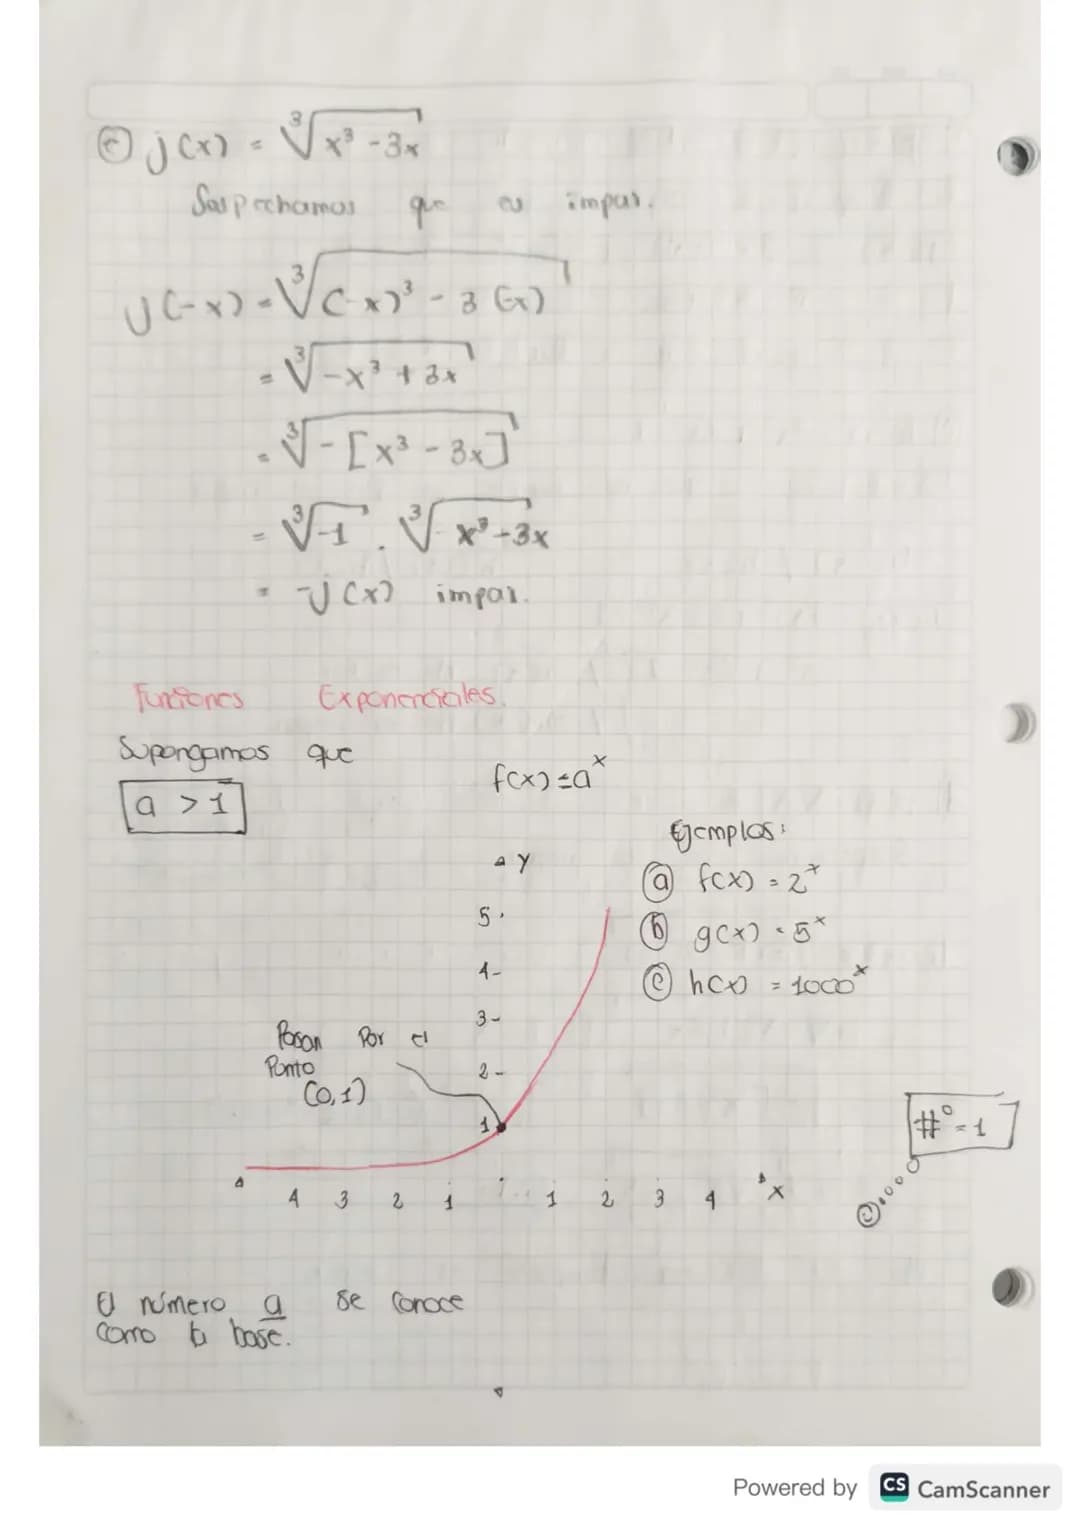 c j(x) = ∛(x³ - 3x)
Sospechamos que es impar.
j(-x) = ∛((-x)³ - 3(-x))
= ∛(-x³ + 3x)
= ∛(-[x³ - 3x])
= ∛(-1) · ∛(x³ - 3x)
= -j(x) impar.
Funciones Exponenciales.
Supongamos que
a > 1
f(x) = aˣ
Ejemplos:
a f(x) = 2ˣ
b g(x) = 5ˣ
c h(x) = 1000ˣ
Y
5
4
3
2
1
Pasan Por el
Punto
(0,1)
#⁰ = 1
4 3 2 1 1 2 3 4 X
El número a se conoce
como la base.
Powered by CS CamScanner